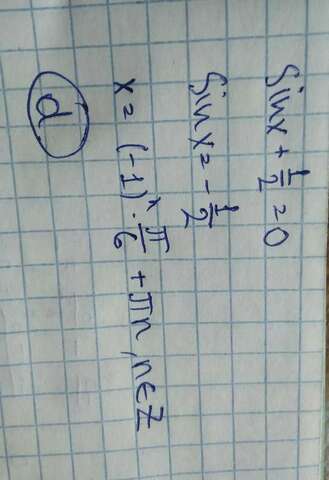 sinx + 1/2 = 0
sinx = - 1/2
x = (-1)ⁿ · π/6 + πn, n∈Z
d